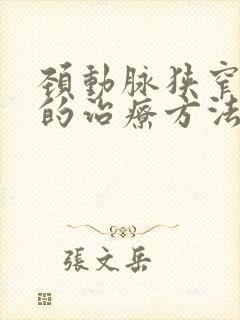 頚動脉狹窄
的治療方法
張文岳